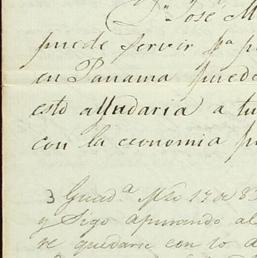 Dn José M
puede servir pa p
en Panama puede
esto alludaria a tu
con la economia p
3 Guada Mzo 17 de 83
y Sigo apurando al
re quedarse con lo a